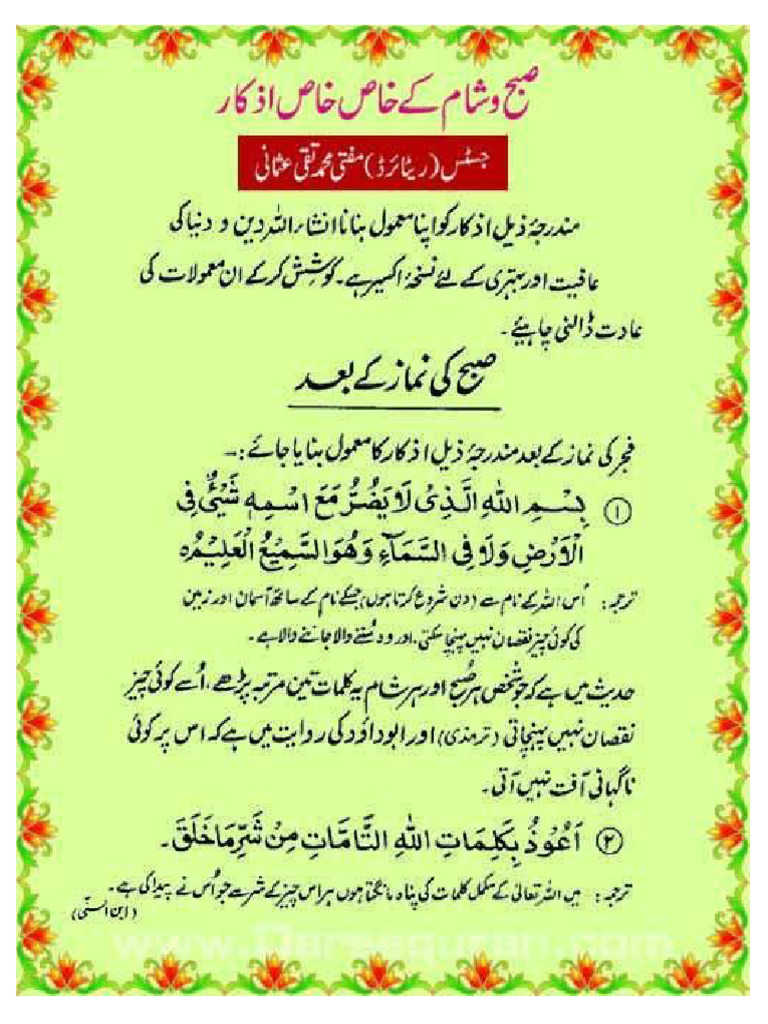 صبح و شام کے خاص خاص اذکار
جسٹس (ریٹائرڈ) مفتی محمد تقی عثمانی
مندرجۂ ذیل اذکار کو اپنا معمول بنانا انشاء اللہ دین و دنیا کی
عافیت اور بہتری کے لئے نسخۂ اکسیر ہے۔ کوشش کر کے ان معمولات کی
عادت ڈالنی چاہیئے۔
صبح کی نماز کے بعد
فجر کی نماز کے بعد مندرجۂ ذیل اذکار کا معمول بنایا جائے:۔
① بِسْمِ اللهِ الَّذِیْ لَا یَضُرُّ مَعَ اسْمِهٖ شَیْئٌ فِی
الْاَرْضِ وَلَا فِی السَّمَآءِ وَهُوَ السَّمِیْعُ الْعَلِیْمُ ہ
ترجمہ: اُس اللہ کے نام سے (دن شروع کرتا ہوں) جسکے نام کے ساتھ آسمان اور زمین
کی کوئی چیز نقصان نہیں پہنچا سکتی، اور وہ سُننے والا جاننے والا ہے۔
حدیث میں ہے کہ جو شخص ہر صُبح اور ہر شام یہ کلمات تین مرتبہ پڑھے، اُسے کوئی چیز
نقصان نہیں پہنچاتی (ترمذی) اور ابوداؤد کی روایت میں ہے کہ اس پر کوئی
ناگہانی آفت نہیں آتی۔
② اَعُوْذُ بِکَلِمَاتِ اللهِ التَّامَّاتِ مِنْ شَرِّ مَا خَلَقَ۔
ترجمہ: میں اللہ تعالیٰ کے مکمل کلمات کی پناہ مانگتا ہوں ہر اس چیز کے شر سے جو اُس نے پیدا کی ہے۔
(ابن السنّی)
www.Darsequran.com